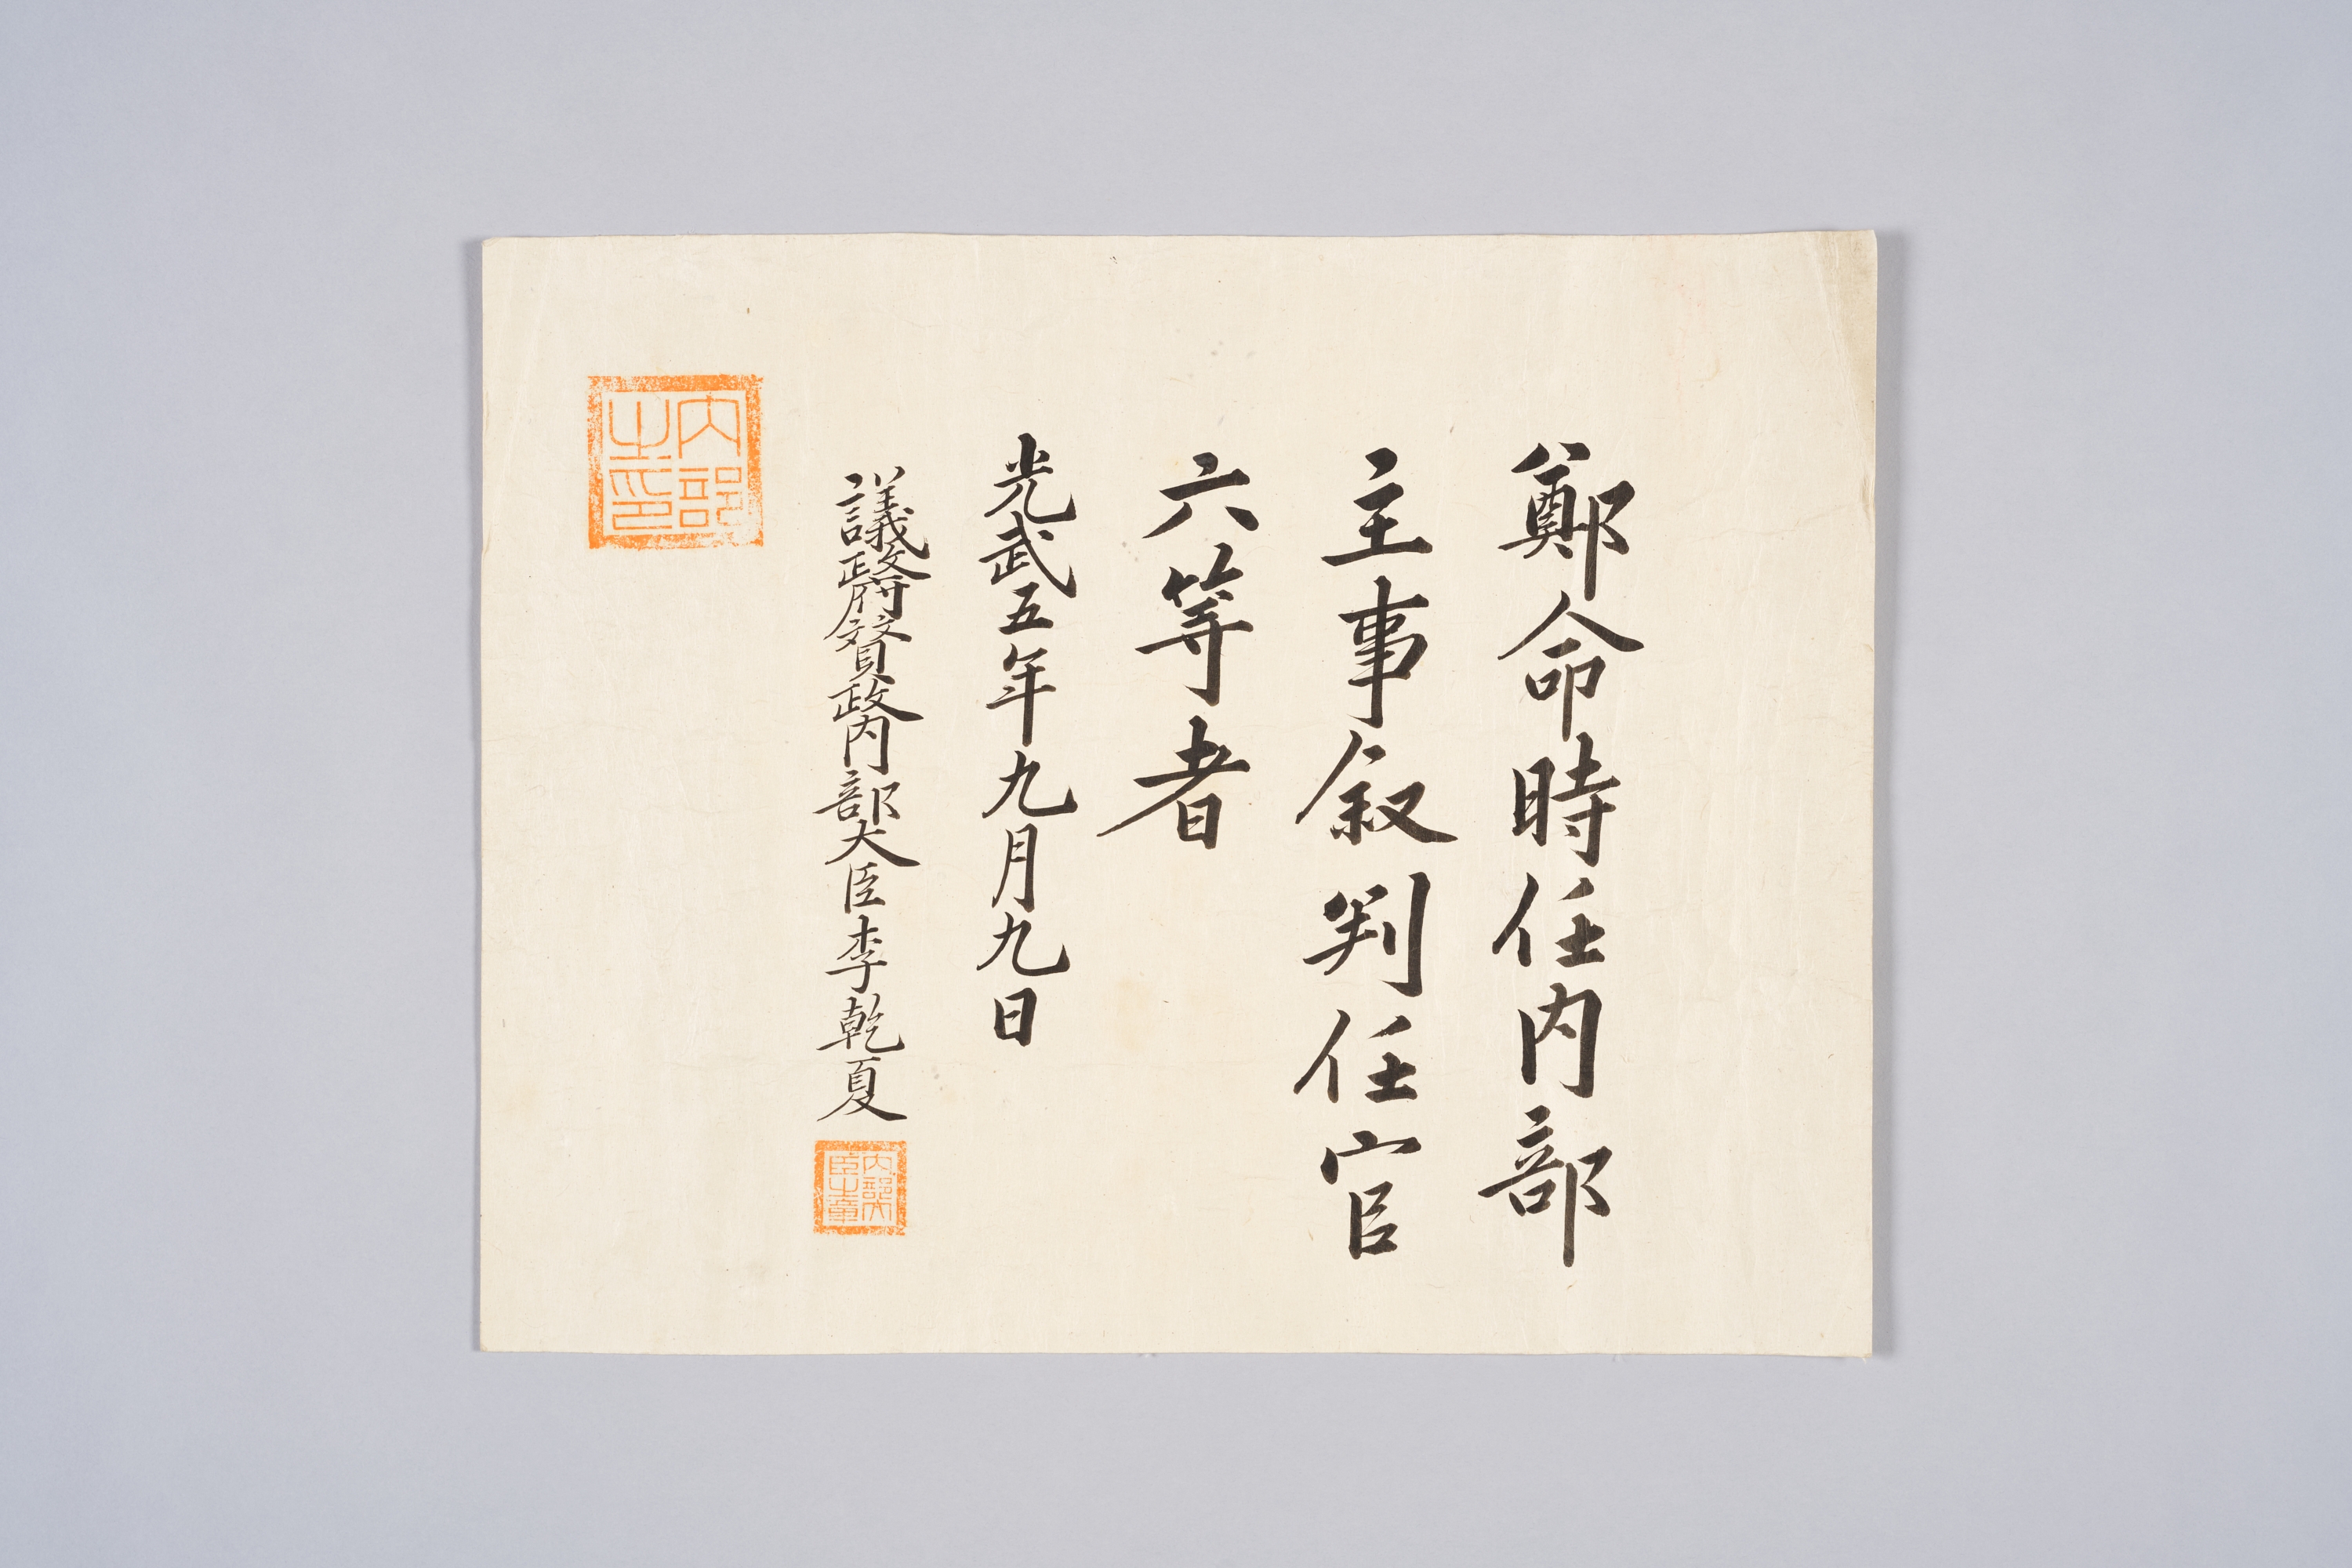 鄭命時任内部
主事叙判任官
六等者
光武五年九月九日
議政府贊政内部大臣李乾夏
内部大臣之章
内部之印